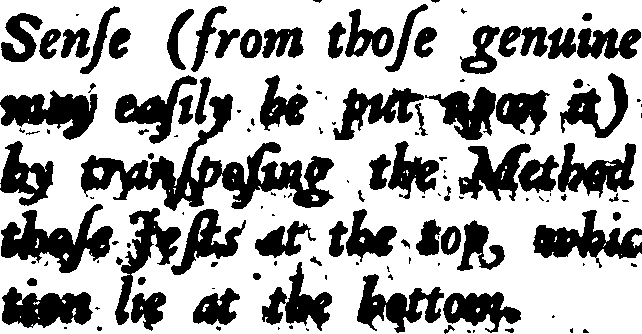 Senſe (from thoſe genuine
may eaſily be put upon it)
by tranſpoſing the Method
thoſe Jeſts at the top, whic
tion lie at the bottom.